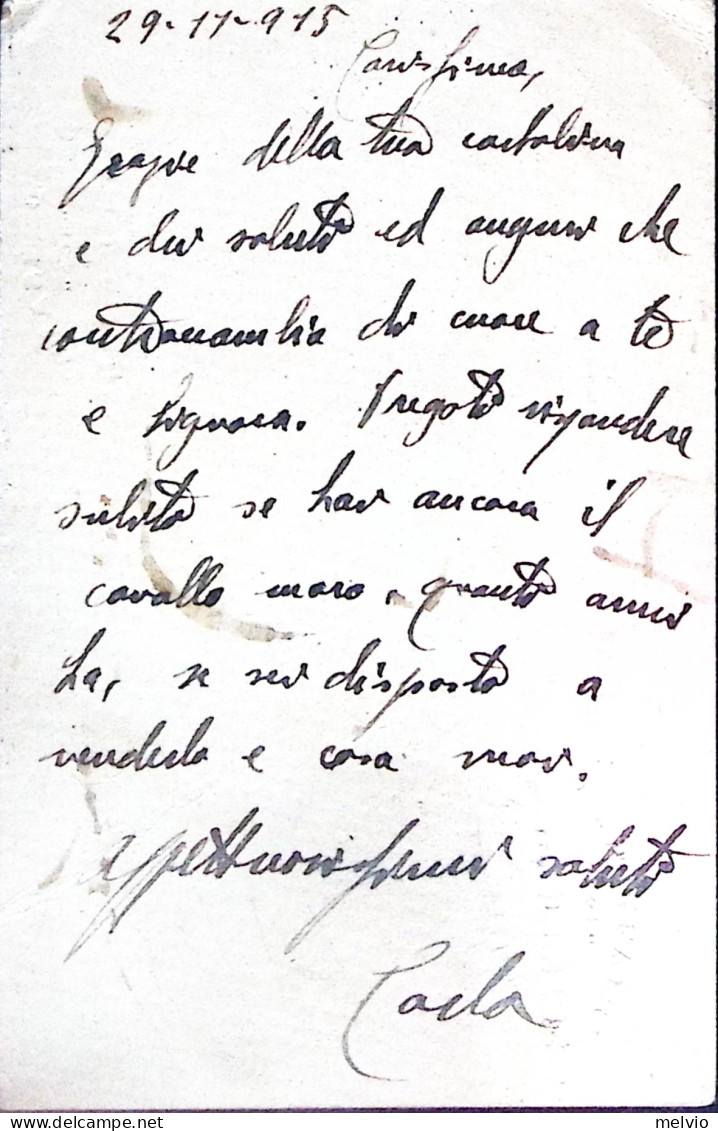 29-11-915
Carissima,
Grazie della tua cartolina
e dei saluti ed auguri che
contraccambia di cuore a te
e Signora. Pregoti rispondere
subito se hai ancora il
cavallo moro, quanti anni
ha, se sei disposto a
venderlo e cosa vuoi.
Affettuosissimi saluti
Carlo
delcampe.net
melvio